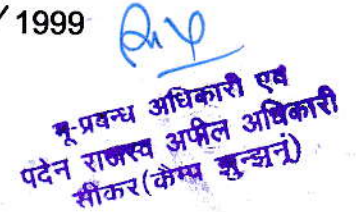 / 1999
भू-प्रबन्ध अधिकारी एवं
पदेन राजस्व अपील अधिकारी
सीकर(कैम्प झुन्झुनूं)